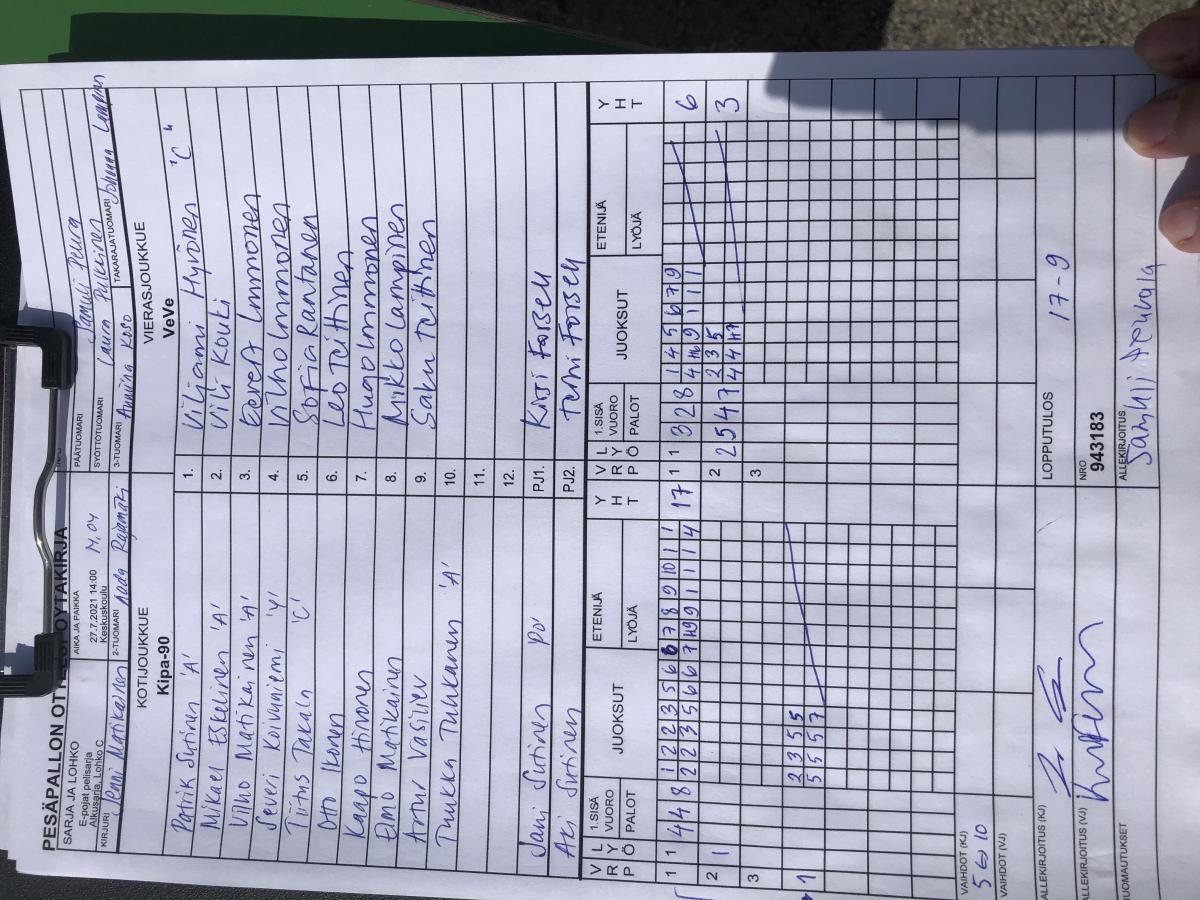 PESÄPALLON OTTELUPÖYTÄKIRJA
SARJA JA LOHKO
E-pojat pelisarja
Alkusarja, Lohko C
AIKA JA PAIKKA
27.7.2021 14:00 M,04
Keskuskoulu
PÄÄTUOMARI Samuli Peura
SYÖTTÖTUOMARI Laura Pulkkinen
KIRJURI Jenni Matikainen
2-TUOMARI Aada Rajamäki
3-TUOMARI Anniina Koso
TAKARAJATUOMARI Johanna Lampinen
KOTIJOUKKUE
Kipa-90
VIERASJOUKKUE
VeVe
Patrik Sutinen 'A' 1. Viljami Hyrönen "C"
Mikael Eskelinen 'A' 2. Vili Kouki
Vilho Matikainen 'A' 3. Eevert Immonen
Severi Koivuniemi 'Y' 4. Vilho Immonen
Tiitus Takala 'C' 5. Sofia Rantanen
Otto Ikonen 6. Leo Teittinen
Kaapo Hinonen 7. Hugo Immonen
Elmo Matikainen 8. Miikko Lampinen
Artur Vasiliev 9. Saku Teittinen
Tuukka Tuhkanen 'A' 10.
11.
12.
Jani Sutinen PJ1. Kirsi Forsell
Aki Sutinen PJ2. Tomi Forsell
V R P L Y Ö 1.SISÄ VUORO PALOT JUOKSUT ETENIJÄ LYÖJÄ Y H T V R P L Y Ö 1.SISÄ VUORO PALOT JUOKSUT ETENIJÄ LYÖJÄ Y H T
1 1 4 4 8 17 1 1 3 2 8 6
1 2 2 3 5 6 6 7 8 9 10 1 1 4 5 6 7 9
2 1 2 2 5 4 7 3
2 3 5
3 3
1 2 3 5 5
5 5 5 7
VAIHDOT (KJ)
5 ↔ 10
VAIHDOT (VJ)
LOPPUTULOS 17-9
ALLEKIRJOITUS (KJ)
ALLEKIRJOITUS (VJ)
NRO
943183
HUOMAUTUKSET
ALLEKIRJOITUS